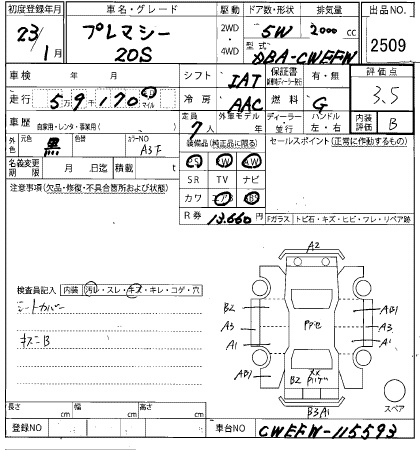 初度登録年月 車名・グレード 駆動 ドア数・形状 排気量 出品NO
23/1月 プレマシー 20S 2WD 4WD 5W 2000cc 2509
型式 DBA-CWEFW
車検 年 月 シフト IAT 保証書 有・無 評価点
走行 5万9千170 マイル 冷房 AAC 燃料 G 3.5
車歴 自家用・レンタ・事業用( ) 定員 7人 外車モデル ディーラー・並行 ハンドル 左・右 内装評価 B
外色 元色 黒 色替 カラーNO A3F 装備品(純正品に限る) セールスポイント(正常に動作するもの)
PS PW AW
名義変更期限 月 日迄 積載 t SR TV ナビ
注意事項(欠品・修復・不具合箇所および状態) カワ エアB
R券 13,660 Fガラス トビ石・キズ・ヒビ・ワレ・リペア跡
A2
検査員記入 内装 汚レ・スレ・キズ・キレ・コゲ・穴
シートカバー
キズニB
B2 A3 A1 AB1
AB1 A3 A1
B2 XX
B3A1
スペア
長さ cm 幅 cm 高さ cm
登録NO 車台NO CWEFW-115593